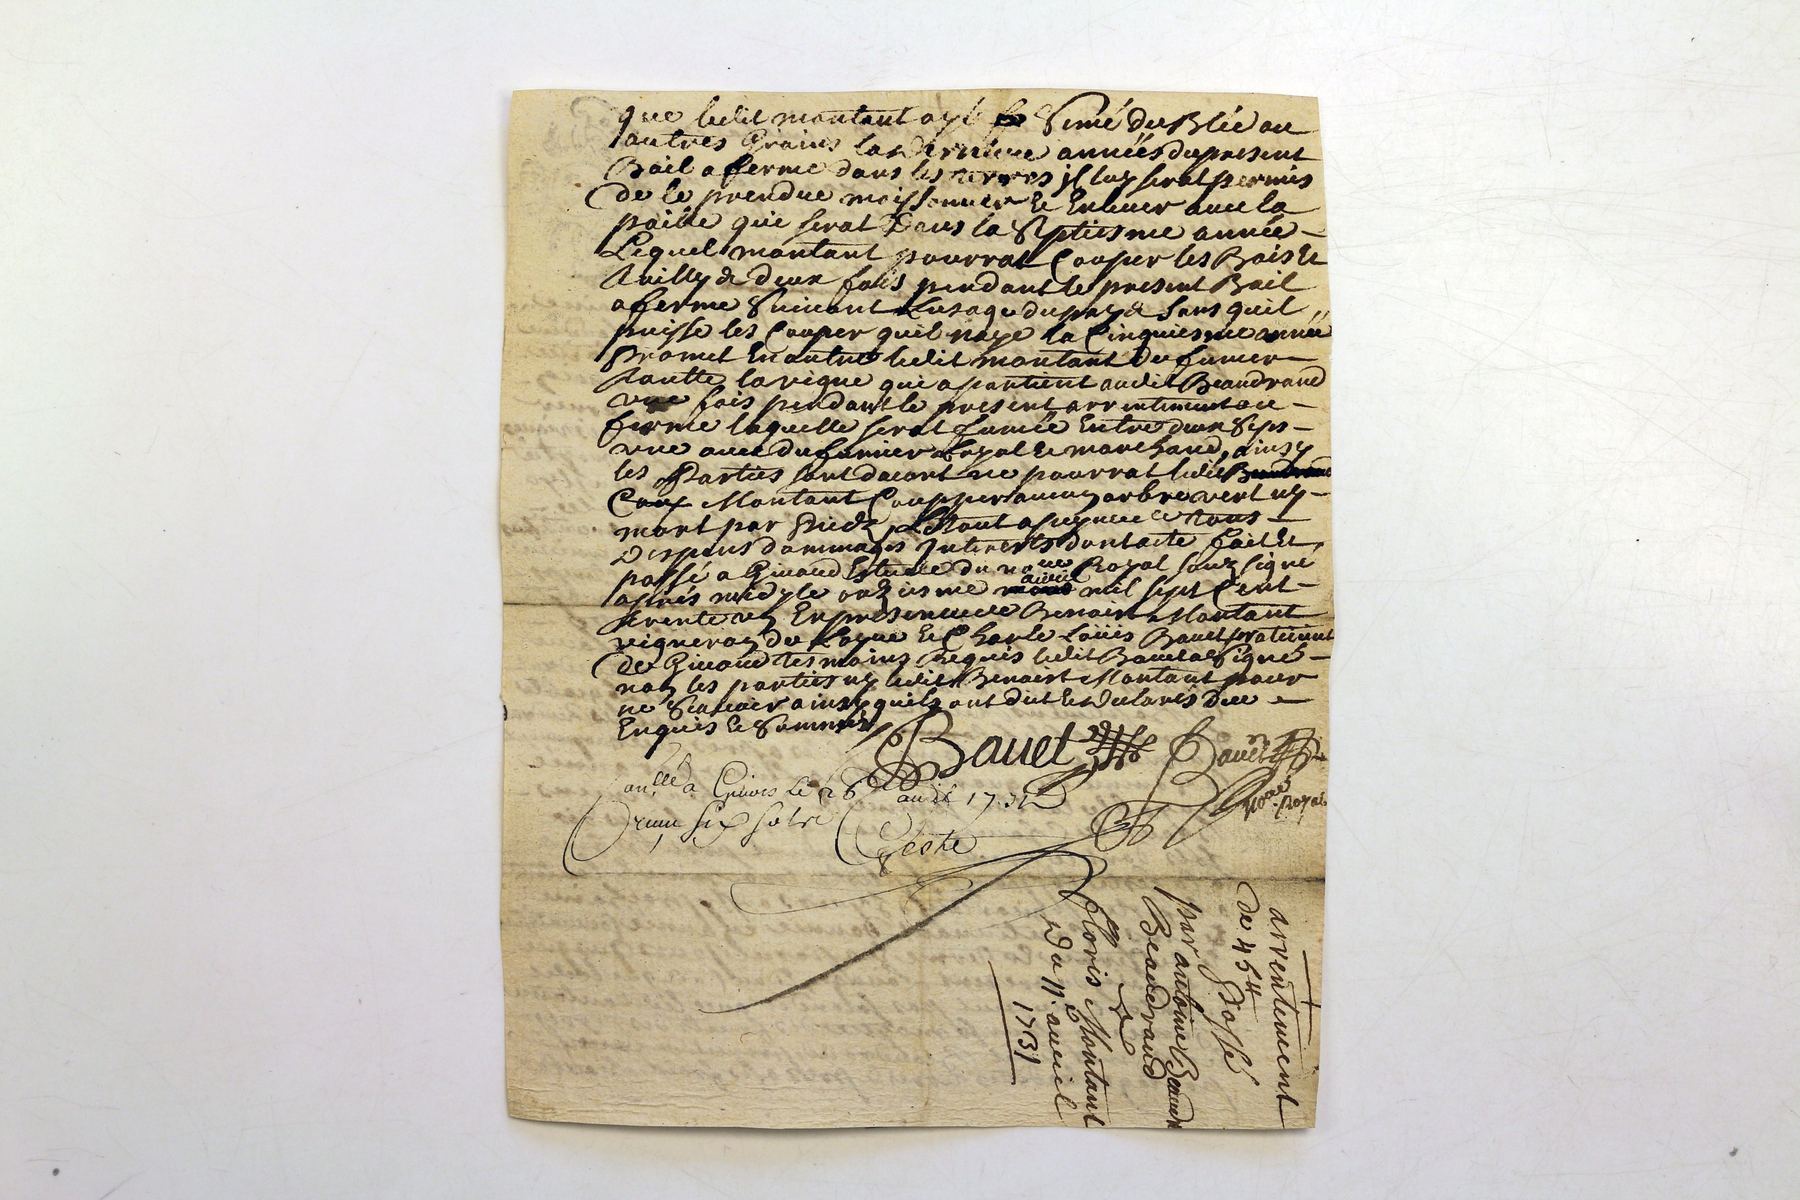 que ledit montant aye semé du Blé ou
autres Grains la derniere années du present
Bail a ferme dans les terres il luy serat permis
de le prendre moissonner et enlever avec la
paille que serat dans la septiesme année
Lequel montant pourrat Couper les Bois et
taillys de deux fois pendant le present Bail
a ferme suivant Lusage du pays sans quil
puisse les Couper quil naye la Cinquiesme année
promet en outre ledit montant de fumer
toutte la vigne qui apartient audit Beaudrand
une fois pendant le present arrentement a
ferme laquelle serat fumée Entre deux seps
une avec du fumier Loyal et marchand, ainsy
les Parties sont dacort ne pourrat ledit
Montant Coupper aucuns arbre vert ny
mort par pied, Le tout a peyne de tous
despens dommages Interests dont acte fait et
passé a Givord Estude du no.re Royal souz signé
apres midy le onziesme avril mil sept Cent
trente un En presence de Benoist Montant
vigneron de Loyre et Charle Loüis Bavet praticient
de Givord tesmoins Requis ledit Bavet a signé
non les parties ny ledit Benoist Montant pour
ne scavoir ainsy quils ont dit et declarés de ce
Enquis et sommés
Bavet Bavet
no.re Royal
con.llé a Givors Le 26 avril 1731
Reçeu six sols
arrentement
de 454
passé
par antoine Beaudrand
Beaudrand
a
floris Montant
Du 11. avril
1731